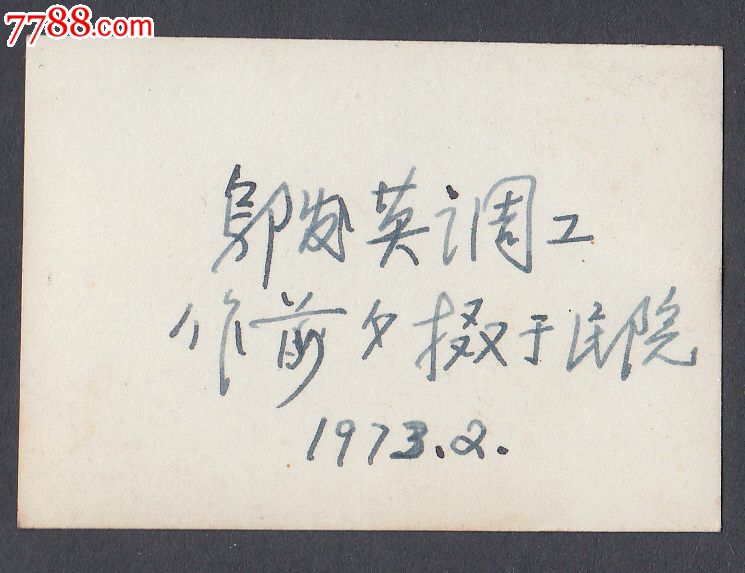 7788.com
邬发英调工
作前夕摄于民院
1973.2.